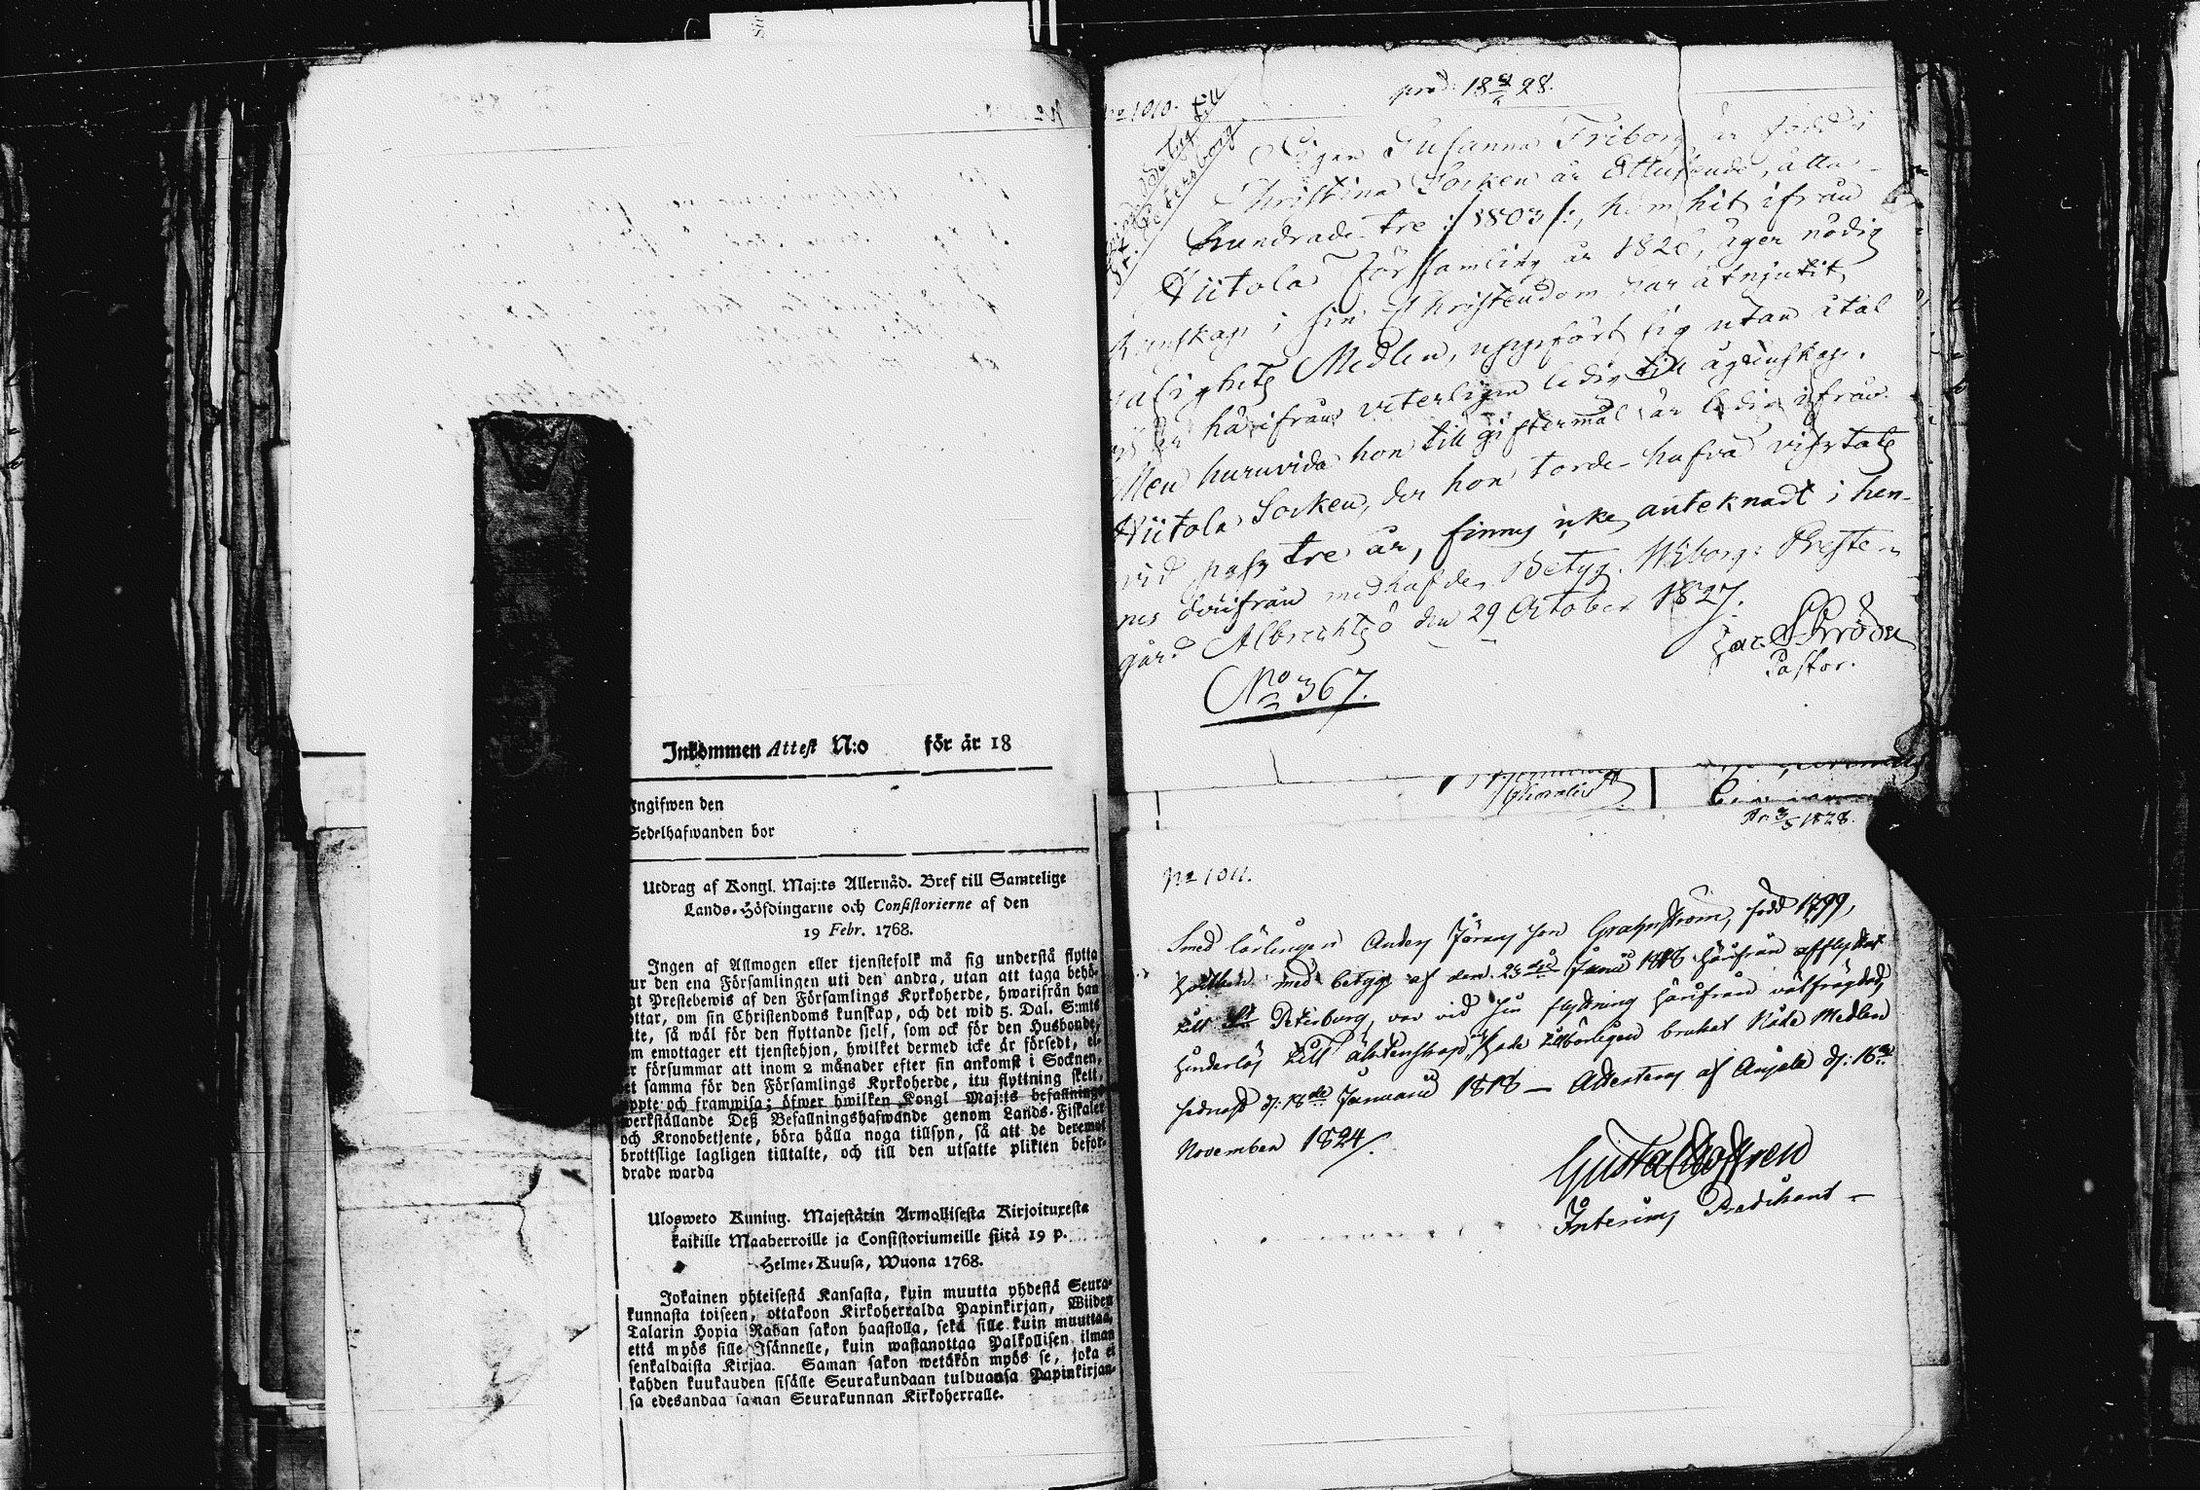 Inkommen Attest N:o för år 18
Ingifwen den
Sedelhafwanden bor
Utdrag af Kongl. Maj:ts Allernåd. Bref till Samtelige
Lands-Höfdingarne och Consistorierne af den
19 Febr. 1768.
Ingen af Allmogen eller tjenstefolk må sig understå flytta
ur den ena Församlingen uti den andra, utan att taga behö-
gt Prestebewis af den Församlings Kyrkoherde, hwarifrån han
ottar, om sin Christendoms kunskap, och det wid 5. Dal. S:mts
ite, så wäl för den flyttande sielf, som ock för den Husbonde,
m emottager ett tjenstehjon, hwilket dermed icke är försedt, el-
r försummar att inom 2 månader efter sin ankomst i Socknen,
et samma för den Församlings Kyrkoherde, itu flyttning skett,
ppte och framwisa; öfwer hwilken Kongl Maj:ts befallning
werkställande Deß Befallningshafwande genom Lands-Fiskaler
och Kronobetjente, böra hålla noga tillsyn, så att de deremot
brottslige lagligen tilltalte, och till den utsatte plikten befor-
drade warda
Ulosweto Kuning. Majestätin Armollisesta Kirjoituxesta
kaikille Maaherroille ja Consistoriumeille siitä 19 p.
Helme-Kuusa, Wuona 1768.
Jokainen yhteisestä Kansasta, kuin muutta yhdestä Seura-
kunnasta toiseen, ottakoon Kirkoherralda Papinkirjan, Wiiden
Talarin Hopia Rahan sakon haastolla, sekä sille kuin muuttaa,
että myös sille Isännelle, kuin wastanottaa Palkollisen ilman
senkaldaista Kirjaa. Saman sakon wetäkön myös se, joka ei
kahden kuukauden sisälle Seurakundaan tulduansa Papinkirjan-
sa edesandaa saman Seurakunnan Kirkoherralle.
No 1010. prod. 18 28.
Betyg till
St. Petersborg
Pigan Susanna Friborg är född i
Christina Socken år Ettusende, åtta
hundrade tre /: 1803 :/, kom hit ifrån
Hiitola Församling år 1826, äger nödig
Kunskap i sin Christendom har åtnjutit
salighets Medlen, uppfört sig utan åtal
är härifrån veterligen ledig till ägtenskap.
Men huruvida hon till giftermål är ledig ifrån
Hiitola Socken, der hon torde hafva vistats
vid pass tre år, finnes icke antecknadt i hen-
nes därifrån medhafde Betyg. Wiborgs Preste-
gård Albrechtsö den 29 October 1827.
Jac. Schröder
Pastor.
No 367.
Pr. 3/5 1828.
No 1011.
Smed lärlingen Anders Jörans son Grahnström, född 1799,
hvilken med betyg af den 23 Junii 1818 härifrån afflyttat
till St Petersburg, var vid sin flyttning härifrån välfrägdad,
hinderlös till äktenskap, hade tillbörligen brukat Nåde Medlen
sednast d: 18de Januarii 1818 — Attesteras af Anjala d: 16de
November 1824.
Gustaf
Interims Predikant —